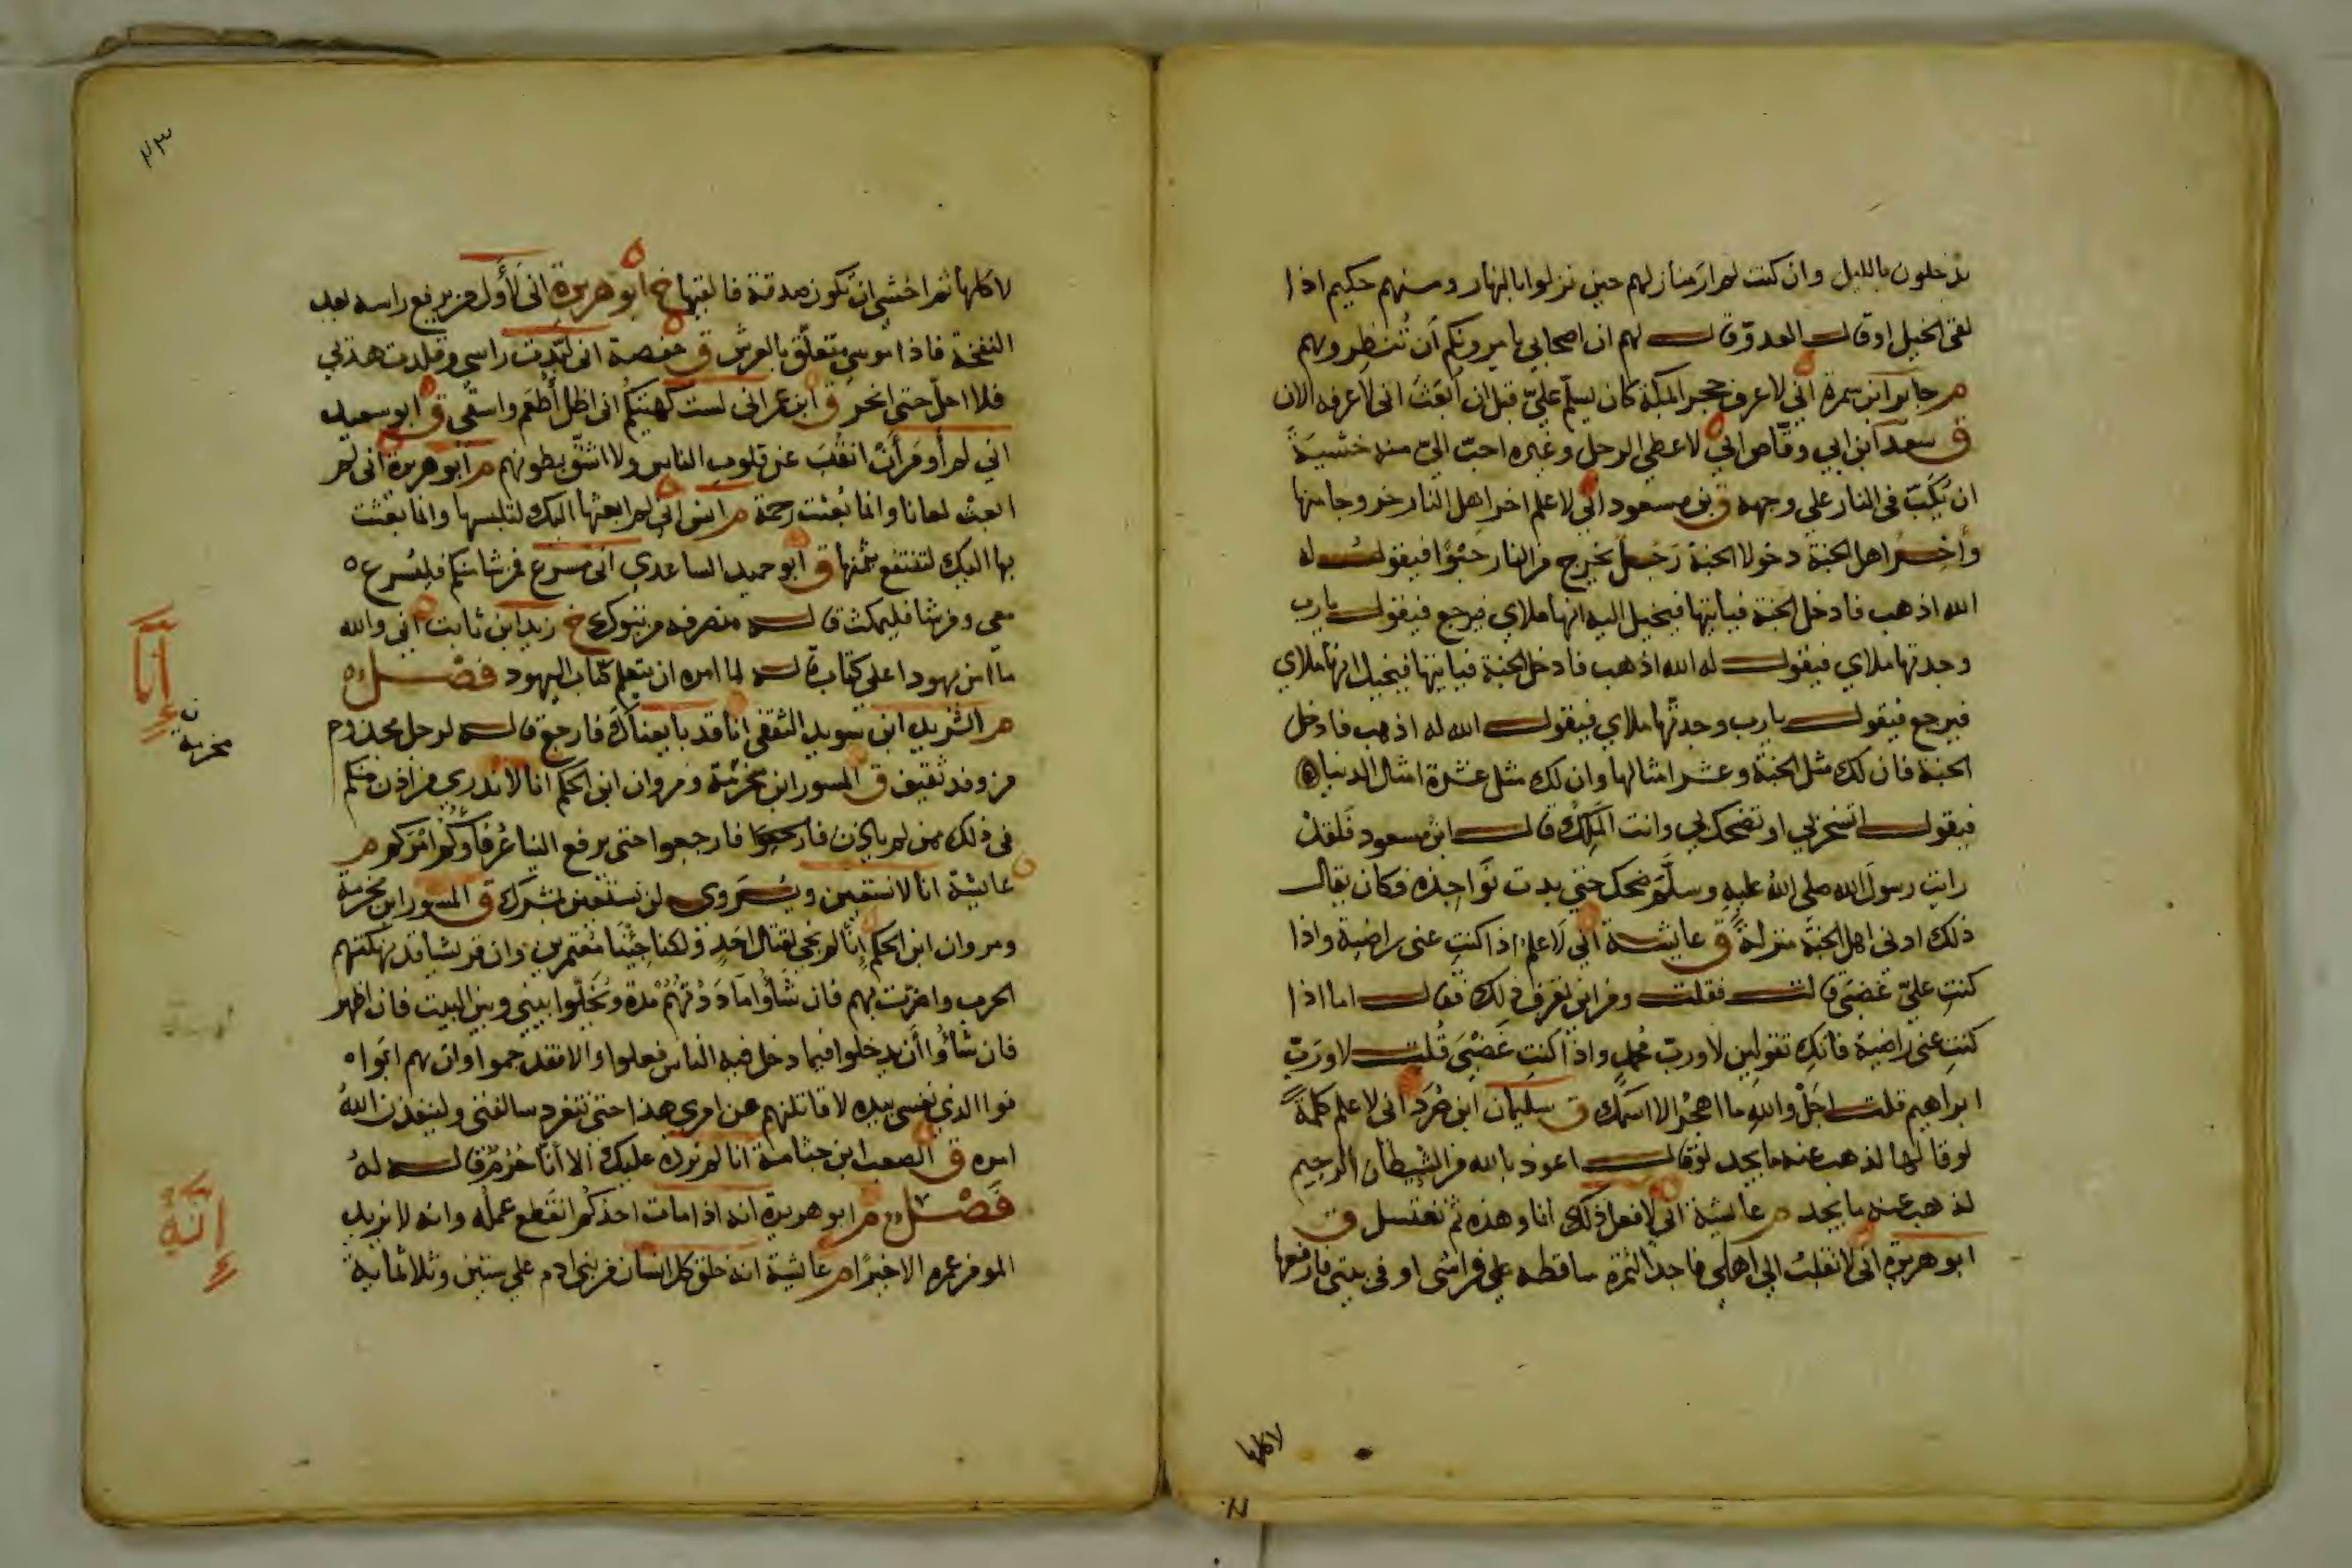 يدخلون بالليل وان كنت لم ار منازلهم حين نزلوا بالنهار ومنهم حكيم اذا
لقى الخيل او قال العدوّ قال لهم ان اصحابي يامرونكم أن تنظروهم
م جابر ابن سمرة انى لاعرف حجرا بمكة كان يسلّم عليّ قبل ان ابعث انى لاعرفه الان
ق سعد ابن ابي وقاص اني لاعطى الرجل وغيره احبّ اليّ منه خشية
ان يكبّ فى النار على وجهه ق بن مسعود اني لا علم اخر اهل النار خروجا منها
وأخر اهل الجنة دخولا الجنة رجل يخرج من النار حبوًا فيقول له
الله اذهب فادخل الجنة فياتيها فيخيل اليه انها ملاي فيرجع فيقول يا رب
وجدتها ملاي فيقول له الله اذهب فادخل الجنة فياتيها فيخيل انها ملاي
فيرجع فيقول يا رب وجدتّها ملاي فيقول الله له اذهب فادخل
الجنة فان لك مثل الجنة وعشر امثالها وان لك مثل عشرة امثال الدنيا
فيقول اتسخر بي او تضحك بي وانت الملك قال ابن مسعود فلقد
رايت رسول الله صلى الله عليه وسلّم ضحك حتي بدت نواجذه فكان يقال
ذلك ادنى اهل الجنة منزلة ق عايشة اني لاعلم اذا كنت عنى راضية واذا
كنت عليّ غضبى قالت فقلت ومن اين تعرف ذلك فقال اما اذا
كنت عنى راضية فانك تقولين لا وربّ محمد واذا كنت غضبى قلت لا وربّ
ابراهيم قلت اجل والله ما اهجر الا اسمك ق سليمان ابن صُرَد انى لا علم كلمة
لو قالها لذهب عنه ما يجد لو قال اعوذ بالله من الشيطان الرجيم
لذهب عنه ما يجد م عايشة انى لافعل ذلك انا وهذه ثم نغتسل ق
ابو هريرة انى لا نقلب الى اهلي فاجد التمرة ساقطه على فراشى او فى بيتى فارفعها
لاكلها
٤٣
لاكلها ثم اخشى ان تكون صدقة فالقيها خ ابو هريرة انى لأول من يرفع راسه بعد
النفخة فاذا موسي متعلّق بالعرش ق حفصة انى لبّدت راسي وقلدت هديي
فلا احلّ حتى انحر ق ابن عمر انى لست كهيئتكم انى اظل أطعم واسقى ق ابو سعيد
اني لم أومر أن انقب عن قلوب الناس ولا اشقّ بطونهم م ابو هريرة انى لم
ابعث لعانا وانما بعثت رحمة م انس انى لم ابعثها اليك لتلبسها وانما بعثت
بها اليك لتنتفع بثمنها ق ابو حميد الساعدي انى مسرع فمن شا منكم فليسرع
معي ومن شا فليمكث قاله منصرفه من تبوك خ زيد ابن ثابت انى والله
ما امن يهودا على كتاب قاله لما امره ان يتعلم كتاب اليهود فصل
م الشريد ابن سويد الثقفى انا قد بايعناك فارجع قاله لرجل مجذوم
من وفد ثقيف ق المسور ابن مخرمة ومروان ابن الحكم انا لا ندري من اذن منكم
فى ذلك ممن لم ياذن فارجعوا فارجعوا حتى يرفع الينا عرفاؤكم امركم م
عايشة انا لا نستعين ويروى لن نستعين بمشرك ق المسور ابن مخرمة
ومروان ابن الحكم إنا لم نجى لقتال احد ولكنا جئنا معتمرين وان قريشا قد نهكتهم
الحرب واضرت بهم فان شاؤا ماددتهم مدة ويخلّوا بيني وبين البيت فان اظهر
فان شاؤا أن يدخلوا فيما دخل فيه الناس فعلوا والا فقد جموا وان هم ابوا
فوا الذي نفسى بيده لاقاتلنهم عن امري هذا حتى تنفرد سالفتى ولينفذن الله
امره ق الصعب ابن جثامة انا لم نرده عليك الا أنا حرم قاله له
فصل م ابو هريرة انه اذا مات احدكم انقطع عمله وانه لا يزيد
المومن عمره الا خيرا م عايشة انه خلق كل انسان من بنى ادم على ستين وثلاثماية
إنّا
مخرمة
إنّه